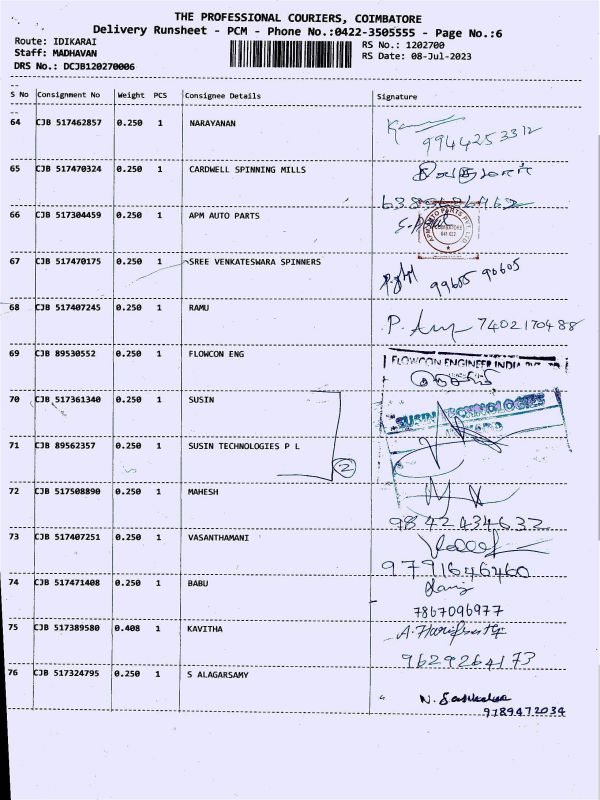 THE PROFESSIONAL COURIERS, COIMBATORE
Delivery Runsheet - PCM - Phone No.:0422-3505555 - Page No.:6
Route: IDIKARAI
RS No.: 1202700
Staff: MADHAVAN
RS Date: 08-Jul-2023
DRS No.: DCJB120270006
S No Consignment No Weight PCS Consignee Details Signature
64 CJB 517462857 0.250 1 NARAYANAN
9944253312
65 CJB 517470324 0.250 1 CARDWELL SPINNING MILLS
66 CJB 517304459 0.250 1 APM AUTO PARTS
COIMBATORE
67 CJB 517470175 0.250 1 SREE VENKATESWARA SPINNERS
99605 90605
68 CJB 517407245 0.250 1 RAMU
P. 7402170488
69 CJB 89530552 0.250 1 FLOWCON ENG
FLOWCON ENGINEER INDIA
70 CJB 517361340 0.250 1 SUSIN
SUSIN TECHNOLOGIES
71 CJB 89562357 0.250 1 SUSIN TECHNOLOGIES P L
2
72 CJB 517508890 0.250 1 MAHESH
9842434632
73 CJB 517407251 0.250 1 VASANTHAMANI
9791646460
74 CJB 517471408 0.250 1 BABU
7867096977
75 CJB 517389580 0.408 1 KAVITHA
9629264173
76 CJB 517324795 0.250 1 S ALAGARSAMY
N. Sasikalaa
9789472034